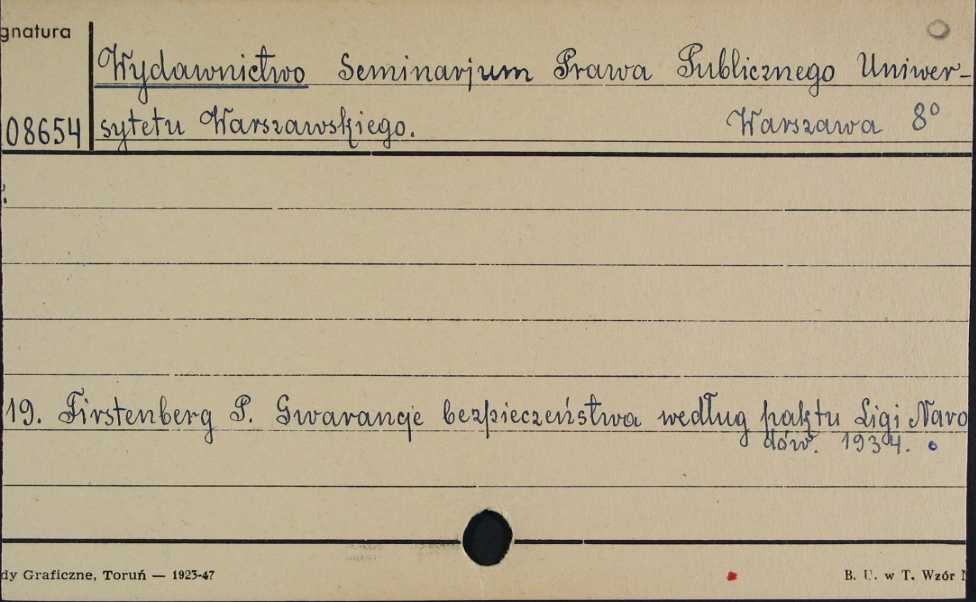 gnatura
Wydawnictwo Seminarjum Prawa Publicznego Uniwer-
08654 sytetu Warszawskiego. Warszawa 8°
19. Firstenberg P. Gwarancje bezpieczeństwa według paktu Ligi Naro
dów. 1934.
dy Graficzne, Toruń — 1923-47 B. U. w T. Wzór